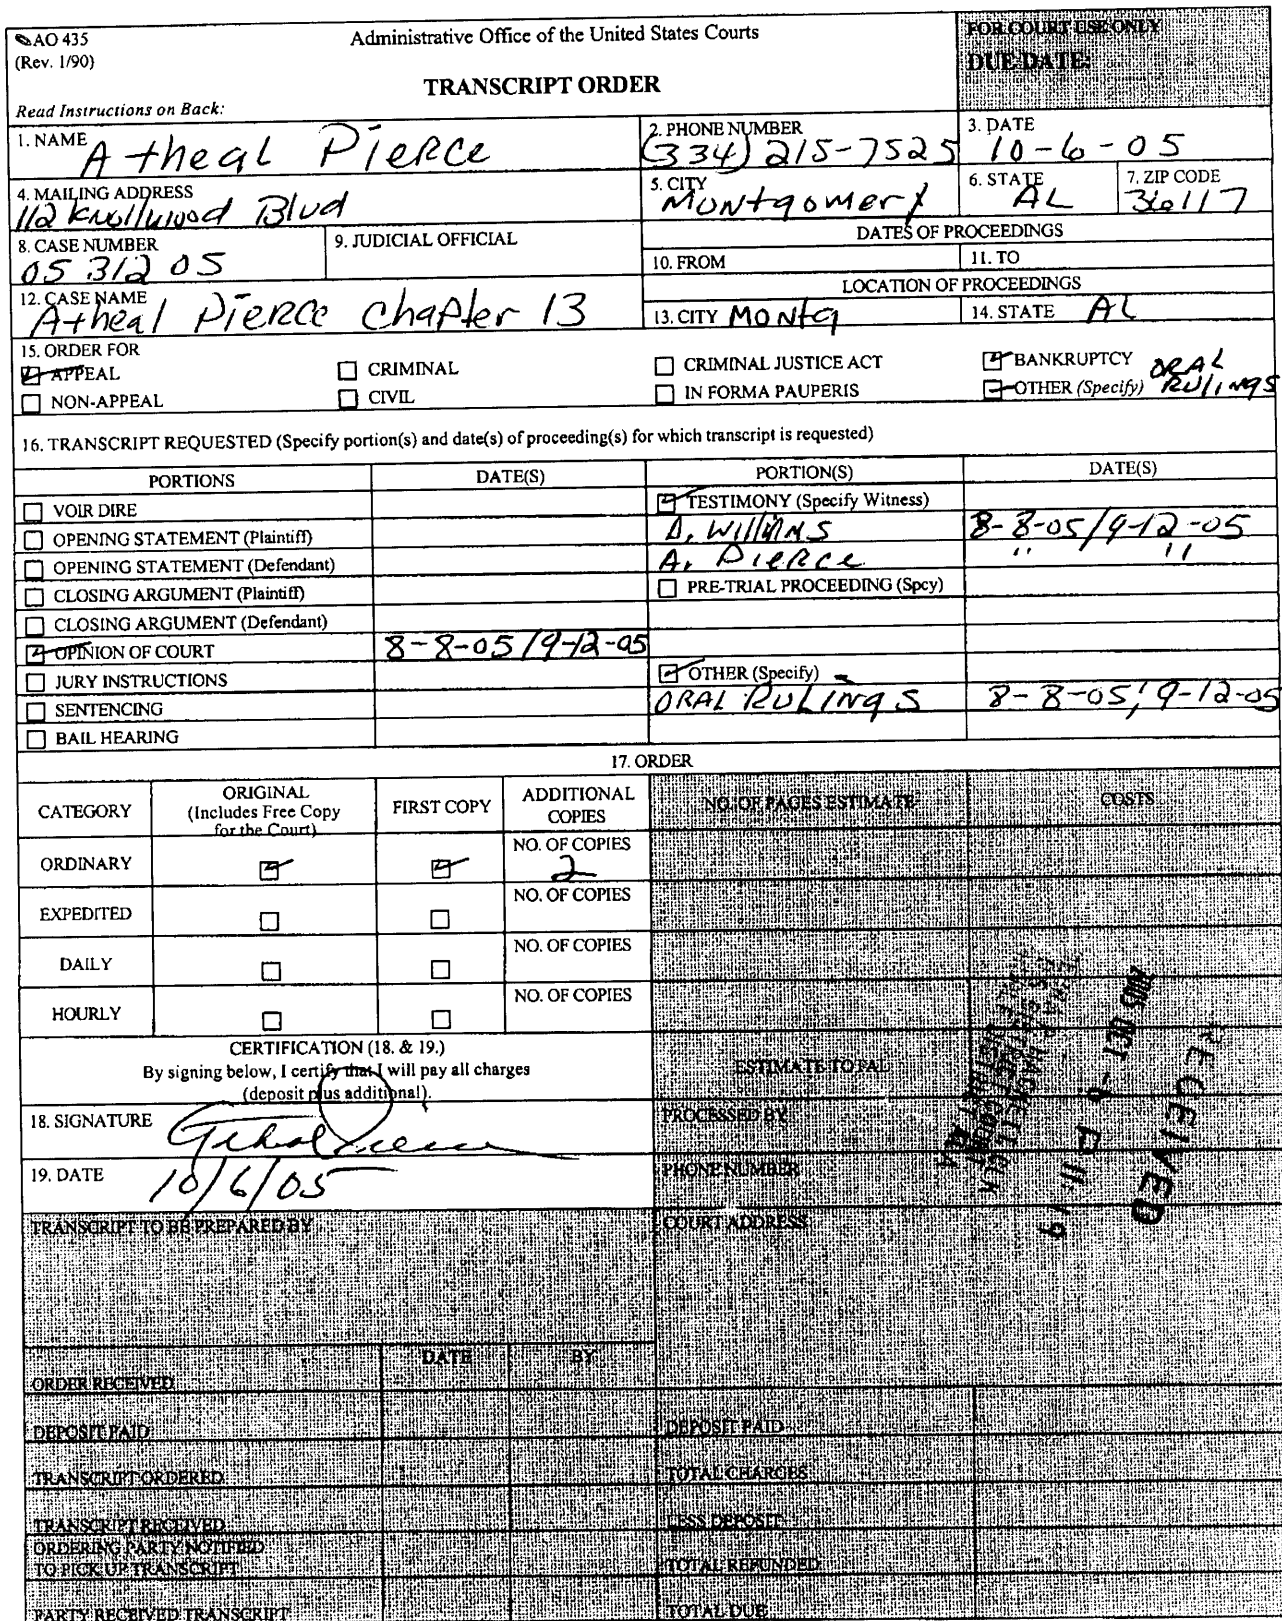 AO 435
(Rev. 1/90)
Administrative Office of the United States Courts
TRANSCRIPT ORDER
Read Instructions on Back:
FOR COURT USE ONLY
DUE DATE:
1. NAME Atheal Pierce
2. PHONE NUMBER (334) 215-7525
3. DATE 10-6-05
4. MAILING ADDRESS 112 Knollwood Blvd
5. CITY Montgomery
6. STATE AL
7. ZIP CODE 36117
8. CASE NUMBER 05 312 05
9. JUDICIAL OFFICIAL
DATES OF PROCEEDINGS
10. FROM
11. TO
12. CASE NAME Atheal Pierce Chapter 13
LOCATION OF PROCEEDINGS
13. CITY MONTG
14. STATE AL
15. ORDER FOR
APPEAL
CRIMINAL
CRIMINAL JUSTICE ACT
BANKRUPTCY
NON-APPEAL
CIVIL
IN FORMA PAUPERIS
OTHER (Specify) ORAL RULINGS
16. TRANSCRIPT REQUESTED (Specify portion(s) and date(s) of proceeding(s) for which transcript is requested)
PORTIONS DATE(S) PORTION(S) DATE(S)
VOIR DIRE
TESTIMONY (Specify Witness)
OPENING STATEMENT (Plaintiff)
8-8-05/9-12-05
OPENING STATEMENT (Defendant)
A. Pierce " "
CLOSING ARGUMENT (Plaintiff)
PRE-TRIAL PROCEEDING (Spcy)
CLOSING ARGUMENT (Defendant)
OPINION OF COURT 8-8-05/9-12-05
JURY INSTRUCTIONS
OTHER (Specify)
SENTENCING
ORAL RULINGS 8-8-05/9-12-05
BAIL HEARING
17. ORDER
CATEGORY
ORIGINAL
(Includes Free Copy
for the Court)
FIRST COPY
ADDITIONAL
COPIES
NO. OF PAGES ESTIMATE
COSTS
ORDINARY
NO. OF COPIES
2
EXPEDITED
NO. OF COPIES
DAILY
NO. OF COPIES
HOURLY
NO. OF COPIES
CERTIFICATION (18. & 19.)
By signing below, I certify that I will pay all charges
(deposit plus additional).
ESTIMATE TOTAL
18. SIGNATURE Atheal Pierce
PROCESSED BY
19. DATE 10/6/05
PHONE NUMBER
RECEIVED
2005 OCT -6 P
TRANSCRIPT TO BE PREPARED BY
COURT ADDRESS
DATE BY
ORDER RECEIVED
DEPOSIT PAID
DEPOSIT PAID
TRANSCRIPT ORDERED
TOTAL CHARGES
TRANSCRIPT RECEIVED
LESS DEPOSIT
ORDERING PARTY NOTIFIED
TO PICK UP TRANSCRIPT
TOTAL REFUNDED
PARTY RECEIVED TRANSCRIPT
TOTAL DUE